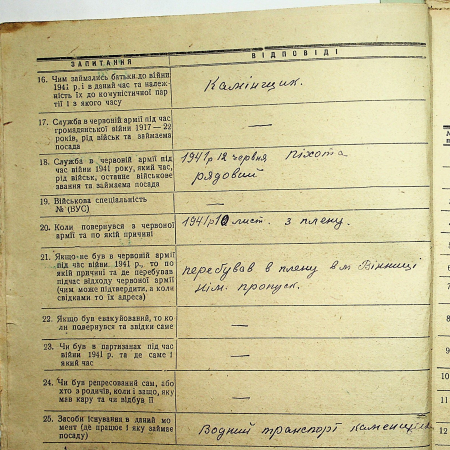 ЗАПИТАННЯ
ВІДПОВІДІ
16. Чим займались батьки до війни
1941 р. і в даний час та належ-
ність їх до комуністичної пар-
тії і з якого часу
Камінщик.
17. Служба в червоній армії під час
громадянської війни 1917—22
років, рід військ та займаєма
посада
—
18. Служба в червоній армії під
час війни 1941 року, який час,
рід військ, останнє військове
звання та займаєма посада
1941р 12 червня піхота
рядовий
19. Військова спеціальність
№ (ВУС)
—
20. Коли повернувся з червоної
армії та по якій причині
1941р 10 лист. з плену.
21. Якщо-не був в червоній армії
під час війни 1941 р., то по
якій причині та де перебував
підчас відходу червоної армії
(чим може підтвердити, а коли
свідками то їх адреса)
перебував в плену в м Вінниці
Нім. пропуск.
22. Якщо був евакуйований, то ко
ли повернувся та звідки саме
—
23. Чи був в партизанах під час
війни 1941 р. та де саме і
який час
—
24. Чи був репресований сам, або
хто з родичів, коли і защо, яку
мав кару та чи відбув її
—
25. Засоби існування в даний мо
мент (де працює і яку займає
посаду)
Водний транспорт каменщіком
10
11
12